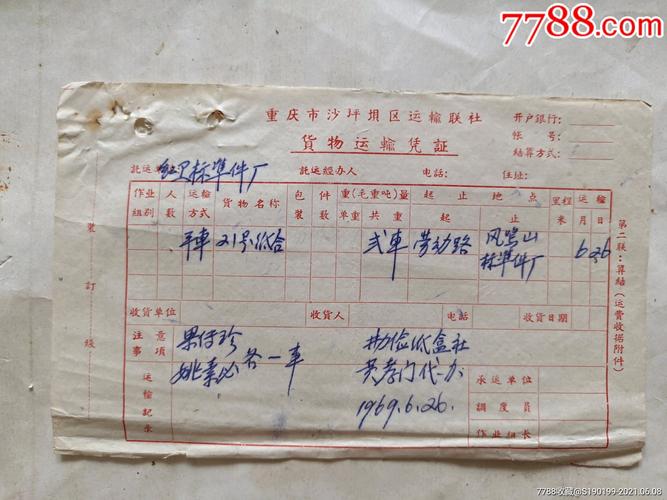 7788.com
重庆市沙坪坝区运输联社
貨物运輸凭証
开户銀行：
帐号：
結算方式：
託运单位 标準件厂
託运經办人
电話：
住址：
作业組別 人数 运輸方式 貨物名称 包装 件数 重(毛重吨)量 单重 共重 起止地点 起 止 里程 来 运輸 月 日
平車 21号纸合 弍車 劳动路 风鸣山标準件厂 6 26
收貨单位 收貨人 电話 收貨日期
注意事項
各一車
纸盒社
代办
1969.6.26.
运輸記录
承运单位
調度員
作业組长
装訂綫
第二联：算結(运費收据附件)
7788收藏@S190199-2021.06.08